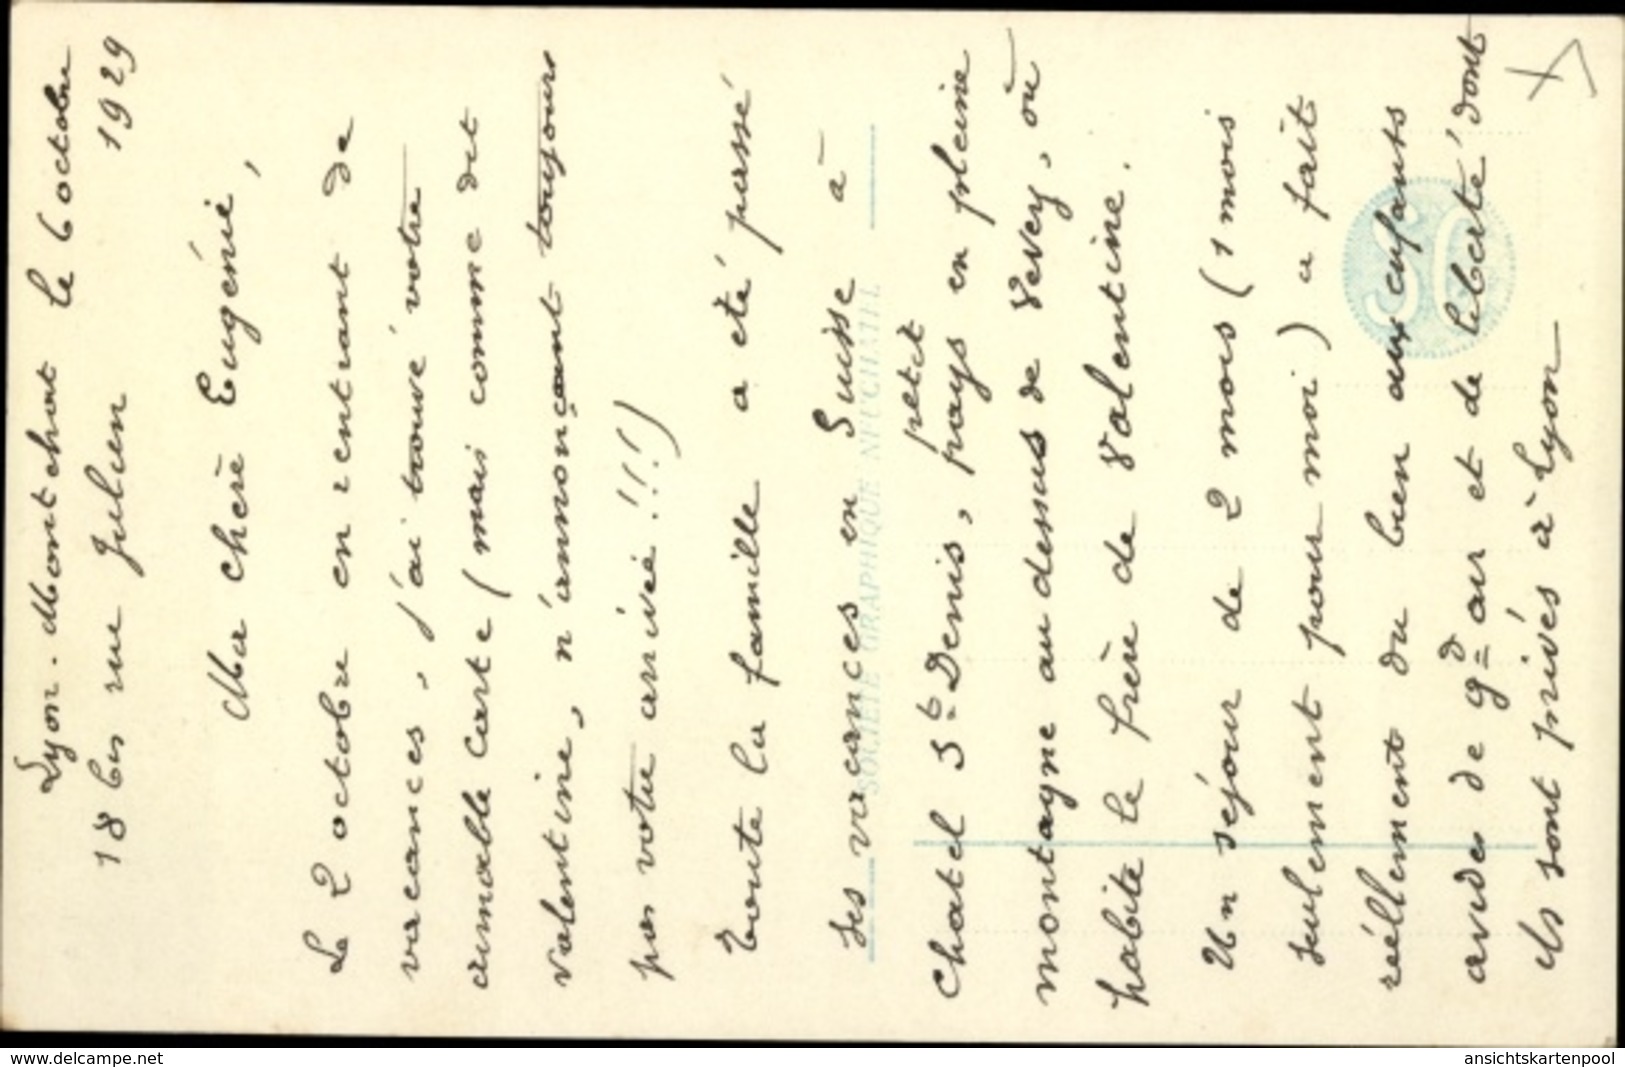 Lyon-Montchat le 6 octobre
18 bis rue Julien 1929
Ma chère Eugénie,
Le 2 octobre en rentrant de
vacances, j'ai trouvé votre
aimable carte (mais comme dit
Valentine, n'annonçant toujours
pas votre arrivée !!!)
Toute la famille a été passé
ses vacances en Suisse à
Chatel St Denis, petit pays en pleine
montagne au dessus de Vevey, où
habite le frère de Valentine.
Un séjour de 2 mois (1 mois
seulement pour moi) a fait
réellement du bien aux enfants
avides de gd air et de liberté dont
ils sont privés à Lyon
SOCIÉTÉ GRAPHIQUE NEUCHATEL
SG
www.delcampe.net
ansichtskartenpool